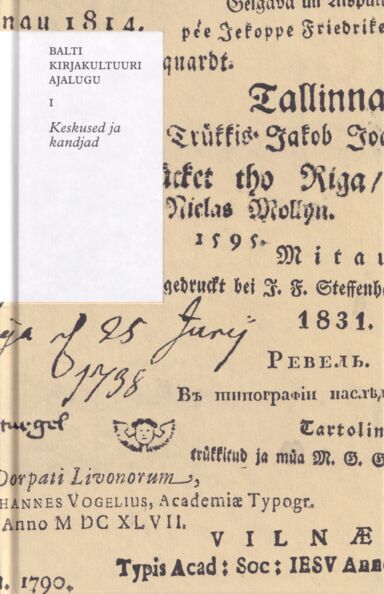 nau 1814.
Gelgava un Aispu
pée Jekoppe Friedrike
BALTI
KIRJAKULTUURI
AJALUGU
I
Keskused ja
kandjad
quardt.
Tallinna
Trükkis Jakob Joo
ucket tho Riga/
Niclas Mollyn.
1595.
Mitau
gedruckt bei J. F. Steffenh
1831.
25 Junij
1738
РЕВЕЛЬ.
Въ типографіи наслѣ
turgel
Tartolin
trükkitud ja müa M. G. G
Dorpati Livonorum,
HANNES VOGELIUS, Academiæ Typogr.
Anno M DC XLVII.
VILNÆ
Typis Acad: Soc: IESV Anno
1790.